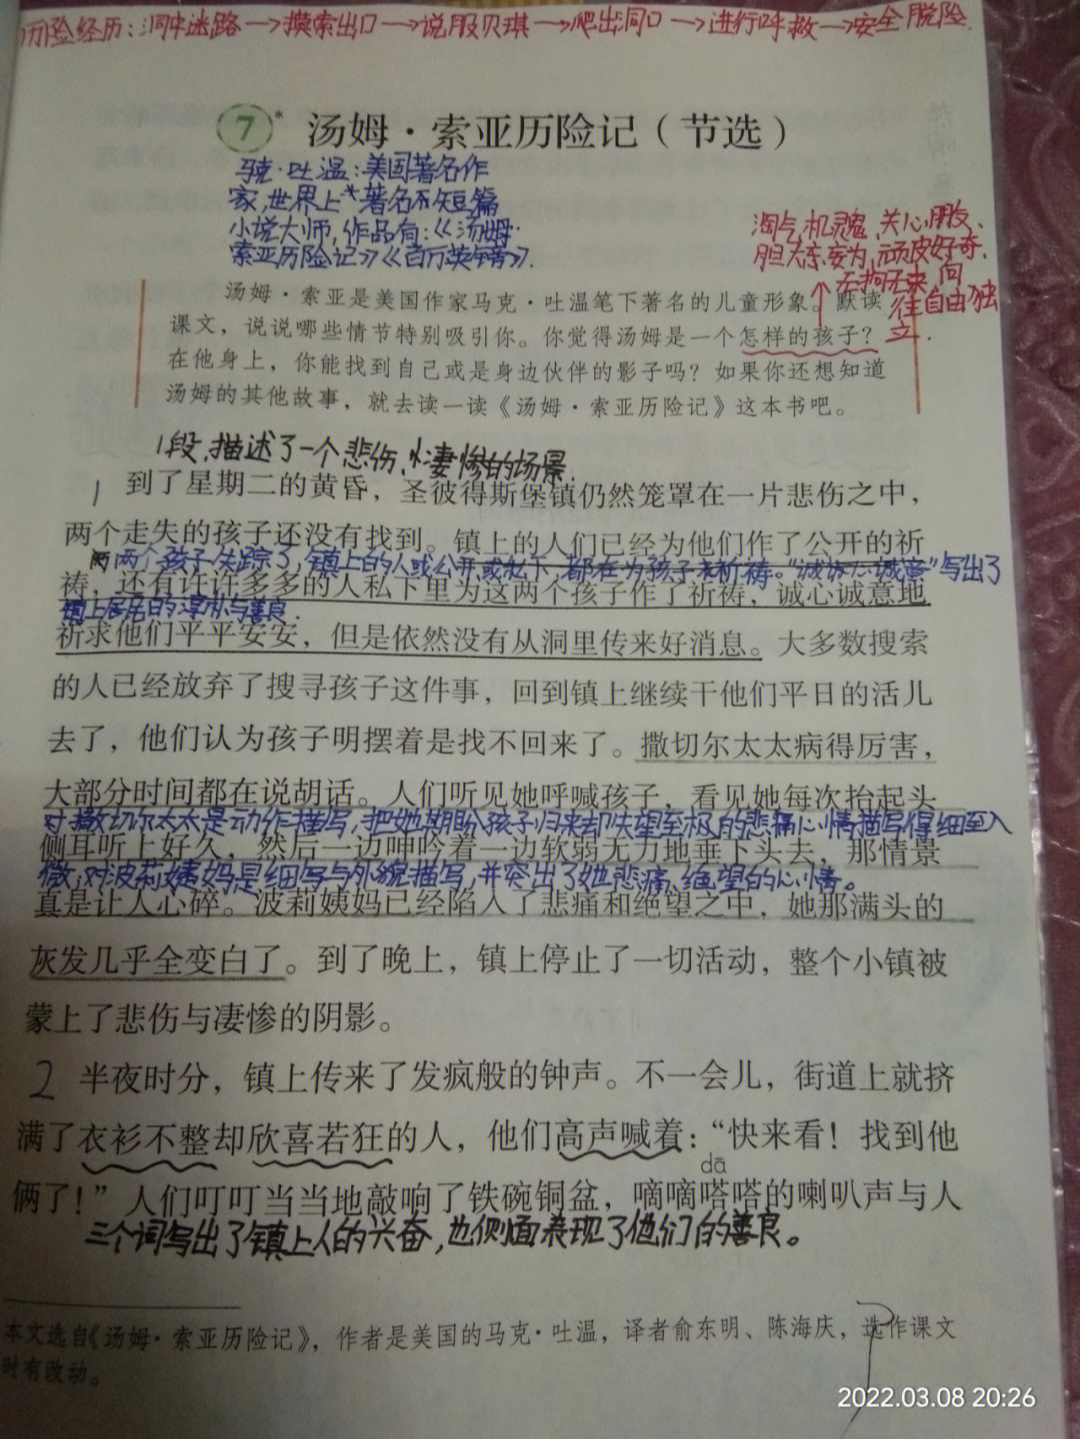 历险经历：洞中迷路→摸索出口→说服贝琪→爬出洞口→进行呼救→安全脱险.
7* 汤姆·索亚历险记（节选）
马克·吐温：美国著名作
家，世界上*著名的短篇
小说大师，作品有：《汤姆·
索亚历险记》《百万英镑》.
淘气、机灵、关心朋友、
胆大妄为、顽皮好奇、
无拘无束、向
往自由独
立.
汤姆·索亚是美国作家马克·吐温笔下著名的儿童形象。默读
课文，说说哪些情节特别吸引你。你觉得汤姆是一个怎样的孩子？
在他身上，你能找到自己或是身边伙伴的影子吗？如果你还想知道
汤姆的其他故事，就去读一读《汤姆·索亚历险记》这本书吧。
1段，描述了一个悲伤、凄惨的场景.
1 到了星期二的黄昏，圣彼得斯堡镇仍然笼罩在一片悲伤之中，
两个走失的孩子还没有找到。镇上的人们已经为他们作了公开的祈
两个孩子失踪了，镇上的人或公开或私下，都在为孩子来祈祷。“诚心诚意”写出了
祷，还有许许多多的人私下里为这两个孩子作了祈祷，诚心诚意地
镇上居民的淳朴与善良.
祈求他们平平安安，但是依然没有从洞里传来好消息。大多数搜索
的人已经放弃了搜寻孩子这件事，回到镇上继续干他们平日的活儿
去了，他们认为孩子明摆着是找不回来了。撒切尔太太病得厉害，
大部分时间都在说胡话。人们听见她呼喊孩子，看见她每次抬起头
对撒切尔太太是动作描写，把她期盼孩子归来却失望至极的悲痛心情描写得细致入
侧耳听上好久，然后一边呻吟着一边软弱无力地垂下头去，那情景
微；对波莉姨妈是细写与外貌描写，并突出了她悲痛、绝望的心情。
真是让人心碎。波莉姨妈已经陷入了悲痛和绝望之中，她那满头的
灰发几乎全变白了。到了晚上，镇上停止了一切活动，整个小镇被
蒙上了悲伤与凄惨的阴影。
2 半夜时分，镇上传来了发疯般的钟声。不一会儿，街道上就挤
满了衣衫不整却欣喜若狂的人，他们高声喊着：“快来看！找到他
dā
俩了！”人们叮叮当当地敲响了铁碗铜盆，嘀嘀嗒嗒的喇叭声与人
三个词写出了镇上人的兴奋，也侧面表现了他们的善良。
本文选自《汤姆·索亚历险记》，作者是美国的马克·吐温，译者俞东明、陈海庆，选作课文
时有改动。
2022.03.08 20:26